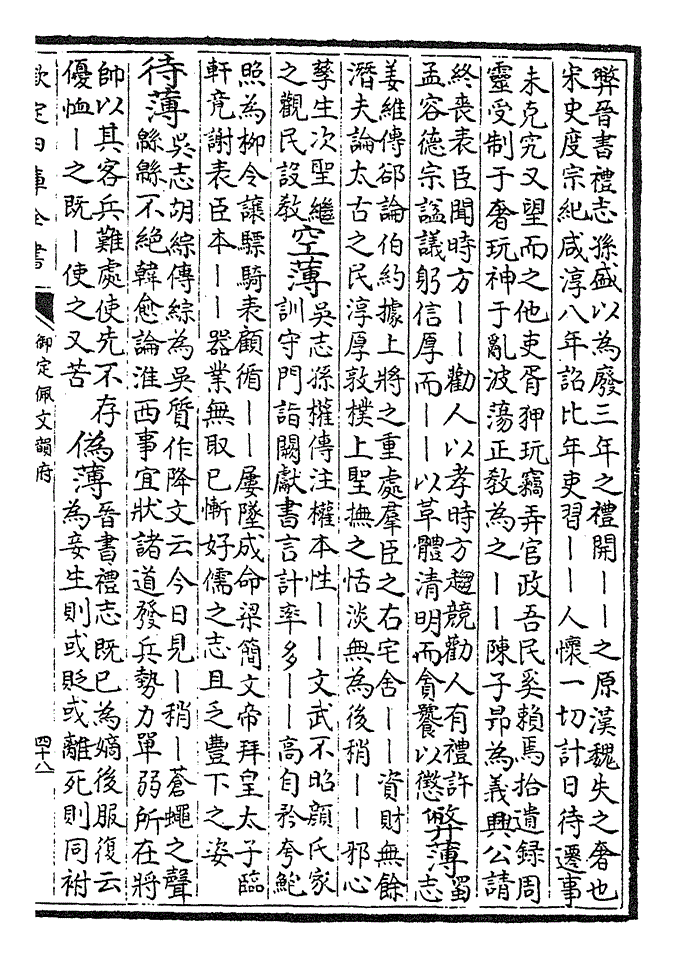 弊晉書禮志孫盛以為廢三年之禮開丨丨之原漢魏失之奢也
宋史度宗紀咸淳八年詔比年吏習丨丨人懷一切計日待遷事
未克究又望而之他吏胥狎玩竊弄官政吾民奚賴焉拾遺録周
靈受制于奢玩神于亂波蕩正教為之丨丨陳子昻為義興公請
終喪表臣聞時方丨丨勸人以孝時方趨競勸人有禮許
孟容德宗謚議躬信厚而丨丨以草體清明而貪饕以懲
弊薄
蜀
志
姜維傳郤論伯約據上將之重處羣臣之右宅舍丨丨資財無餘
潛夫論太古之民淳厚敦樸上聖撫之恬淡無為後稍丨丨邪心
孳生次聖繼
之觀民設教
空薄
吳志孫權傳注權本性丨丨文武不昭顔氏家
訓守門詣闕獻書言計率多丨丨高自矜夸鮑
照為柳令讓驃騎表顧循丨丨屢墜成命梁簡文帝拜皇太子臨
軒竟謝表臣本丨丨器業無取已慚好儒之志且乏豐下之姿
待薄
吳志胡綜傳綜為吳質作降文云今日見丨稍丨蒼蠅之聲
緜緜不絶韓愈論淮西事宜狀諸道發兵勢力單弱所在將
帥以其客兵難處使先不存
優恤丨之既丨使之又苦
偽薄
晉書禮志既已為嫡後服復云
為妾生則或貶或離死則同祔
欽定四庫全書
御定佩文韻府
四十八